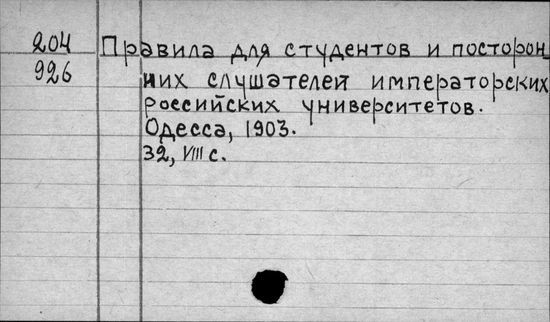 204 Правила для студентов и посторон_
926 них слушателей императорских
российских университетов.
Одесса, 1903.
32, VIII с.